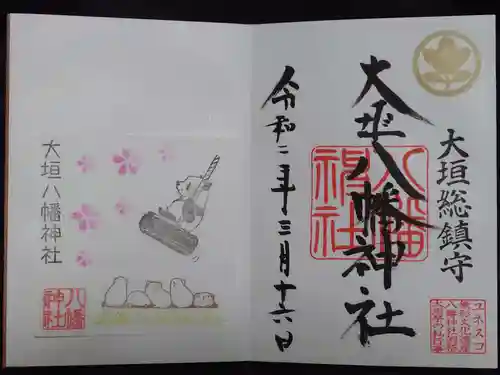 大垣総鎮守
大垣八幡神社
八幡
神社
令和二年三月十六日
ユネスコ
無形文化遺産
八幡神社例祭
大垣祭の軕行事
大垣八幡神社
八幡
神社